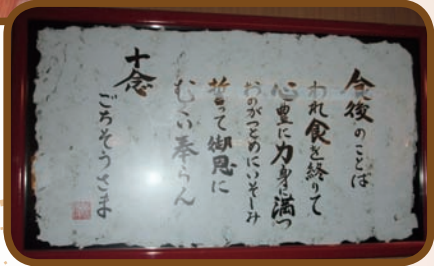 食後のことば
われ食を終りて
心豊に力身に満つ
おのがつとめにいそしみ
誓って御恩に
むくい奉らん
十念
ごちそうさま